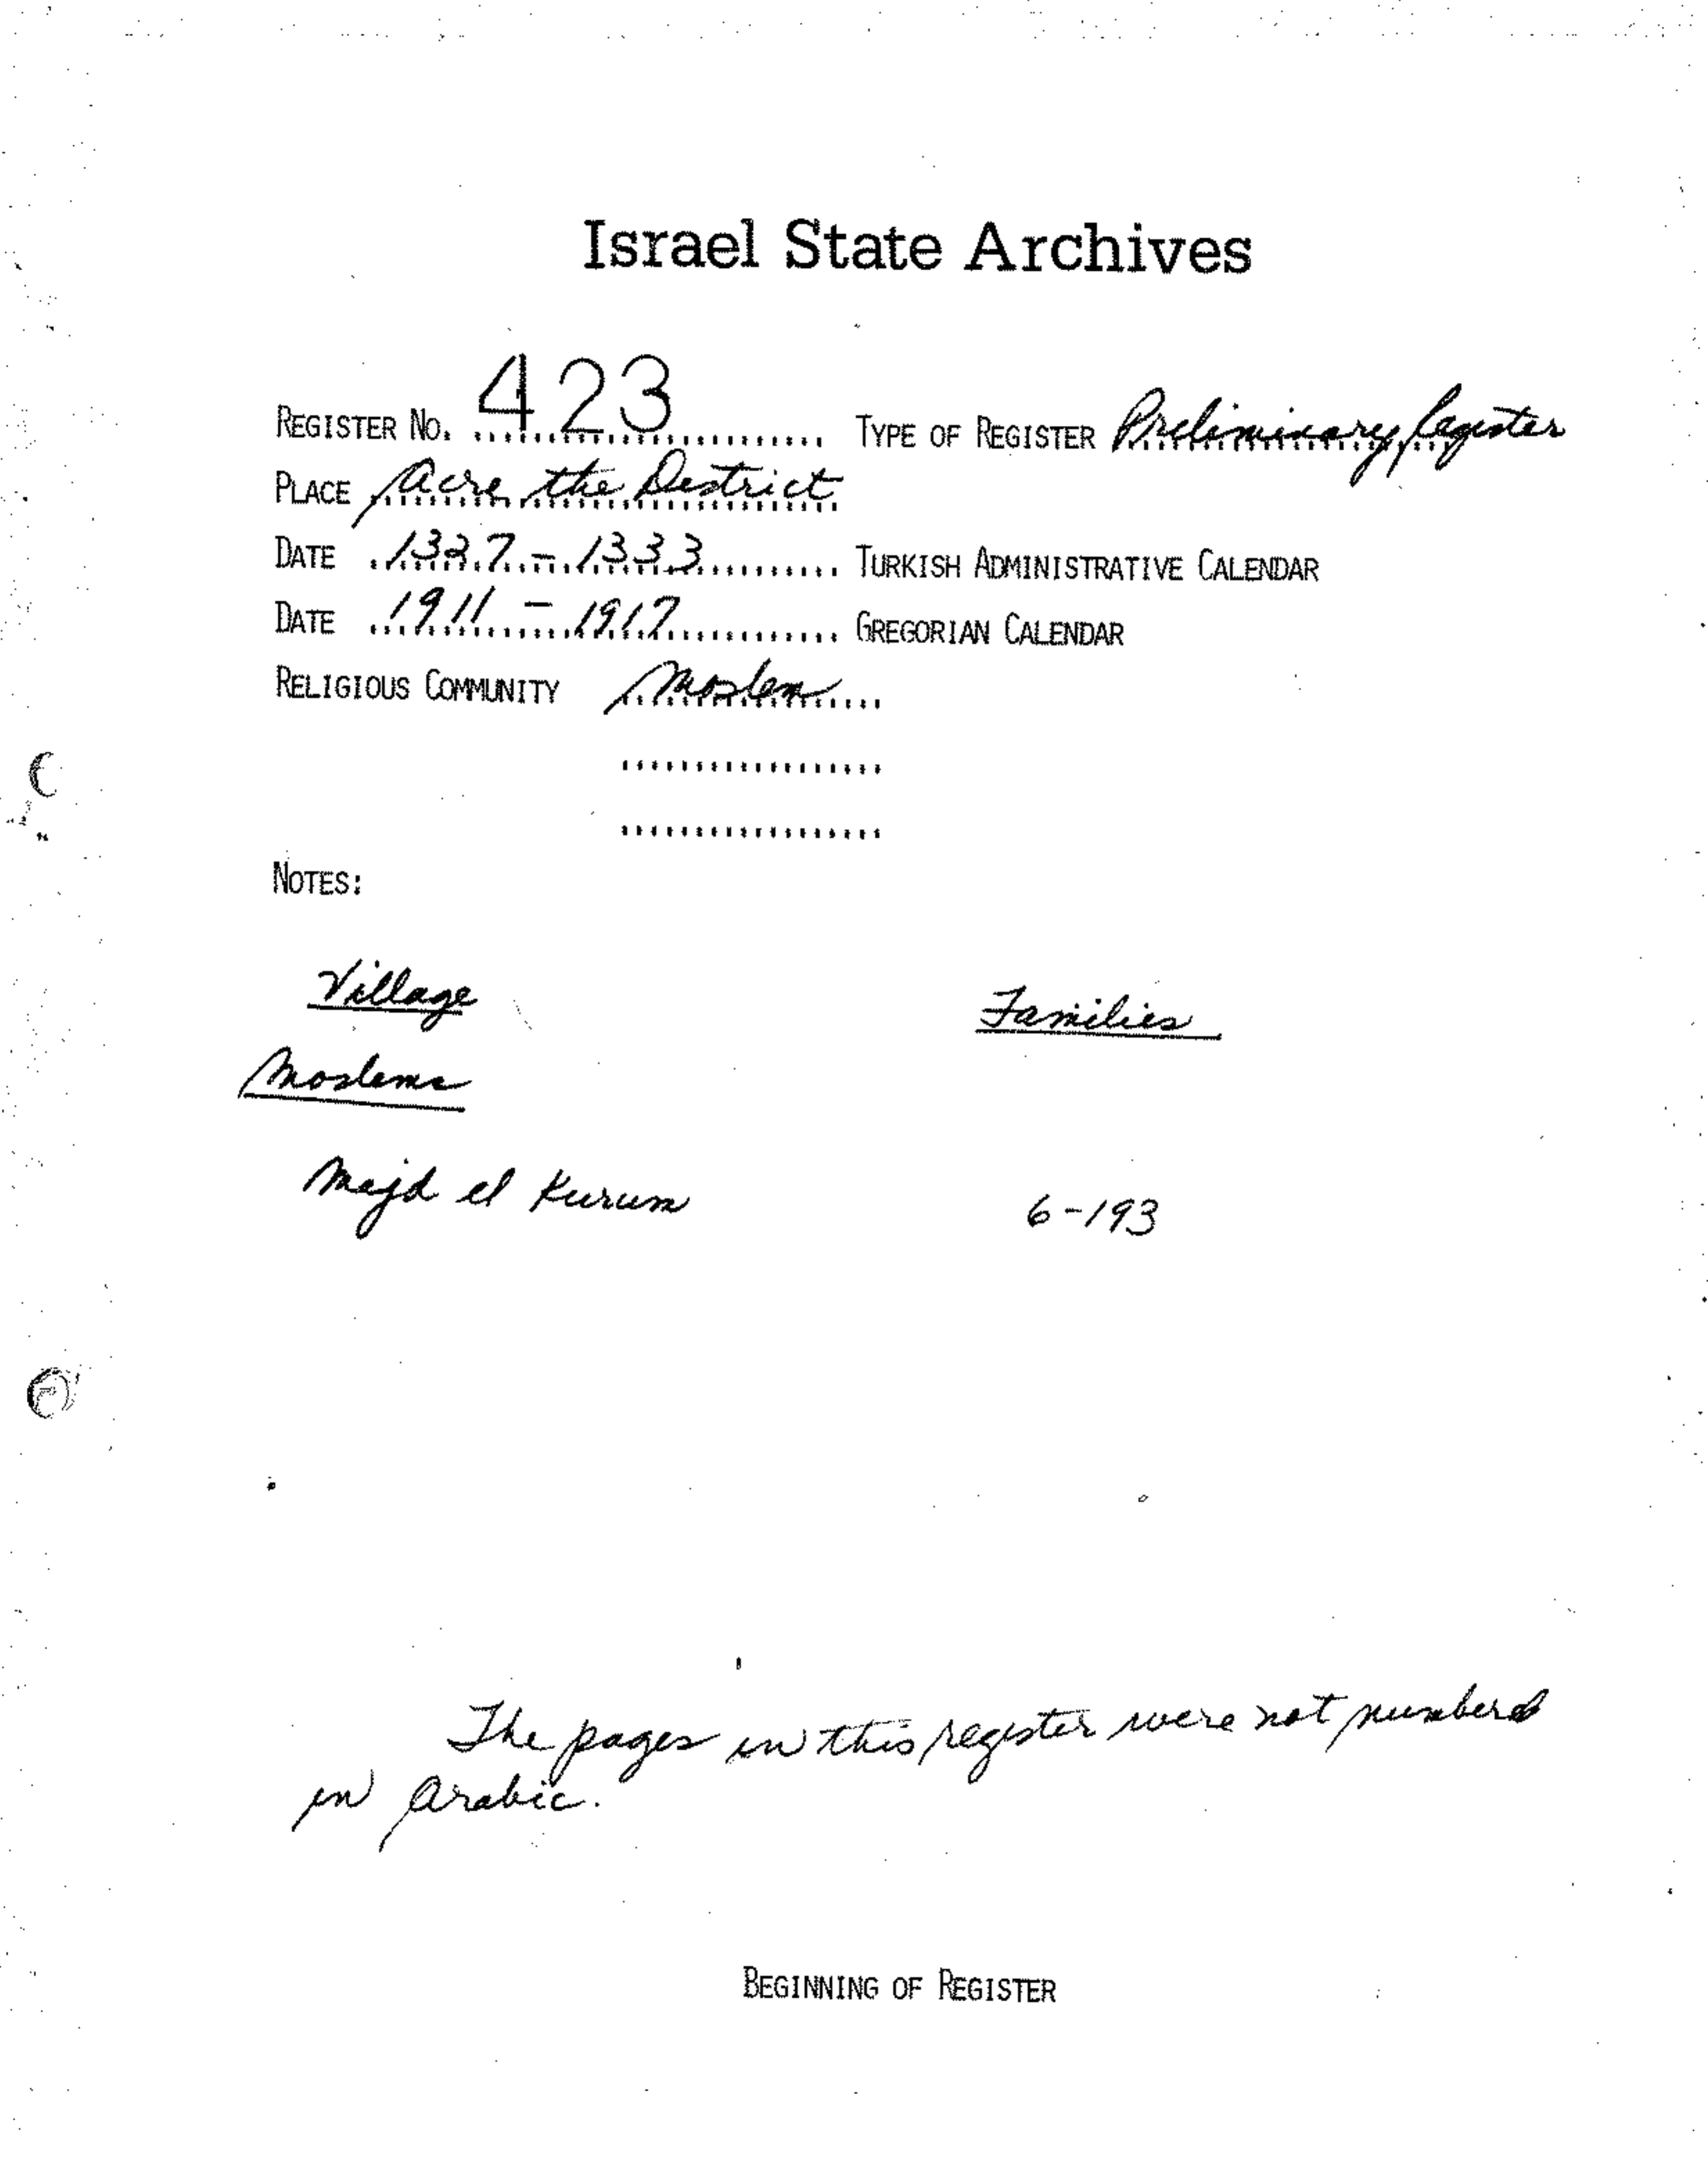 Israel State Archives
REGISTER NO. 423 TYPE OF REGISTER Preliminary Register
PLACE Acre the District
DATE 1327 - 1333 TURKISH ADMINISTRATIVE CALENDAR
DATE 1911 - 1917 GREGORIAN CALENDAR
RELIGIOUS COMMUNITY Moslem
NOTES:
Village Families
Moslems
Majd el Kurum 6-193
The pages in this register were not numbered
in Arabic.
BEGINNING OF REGISTER